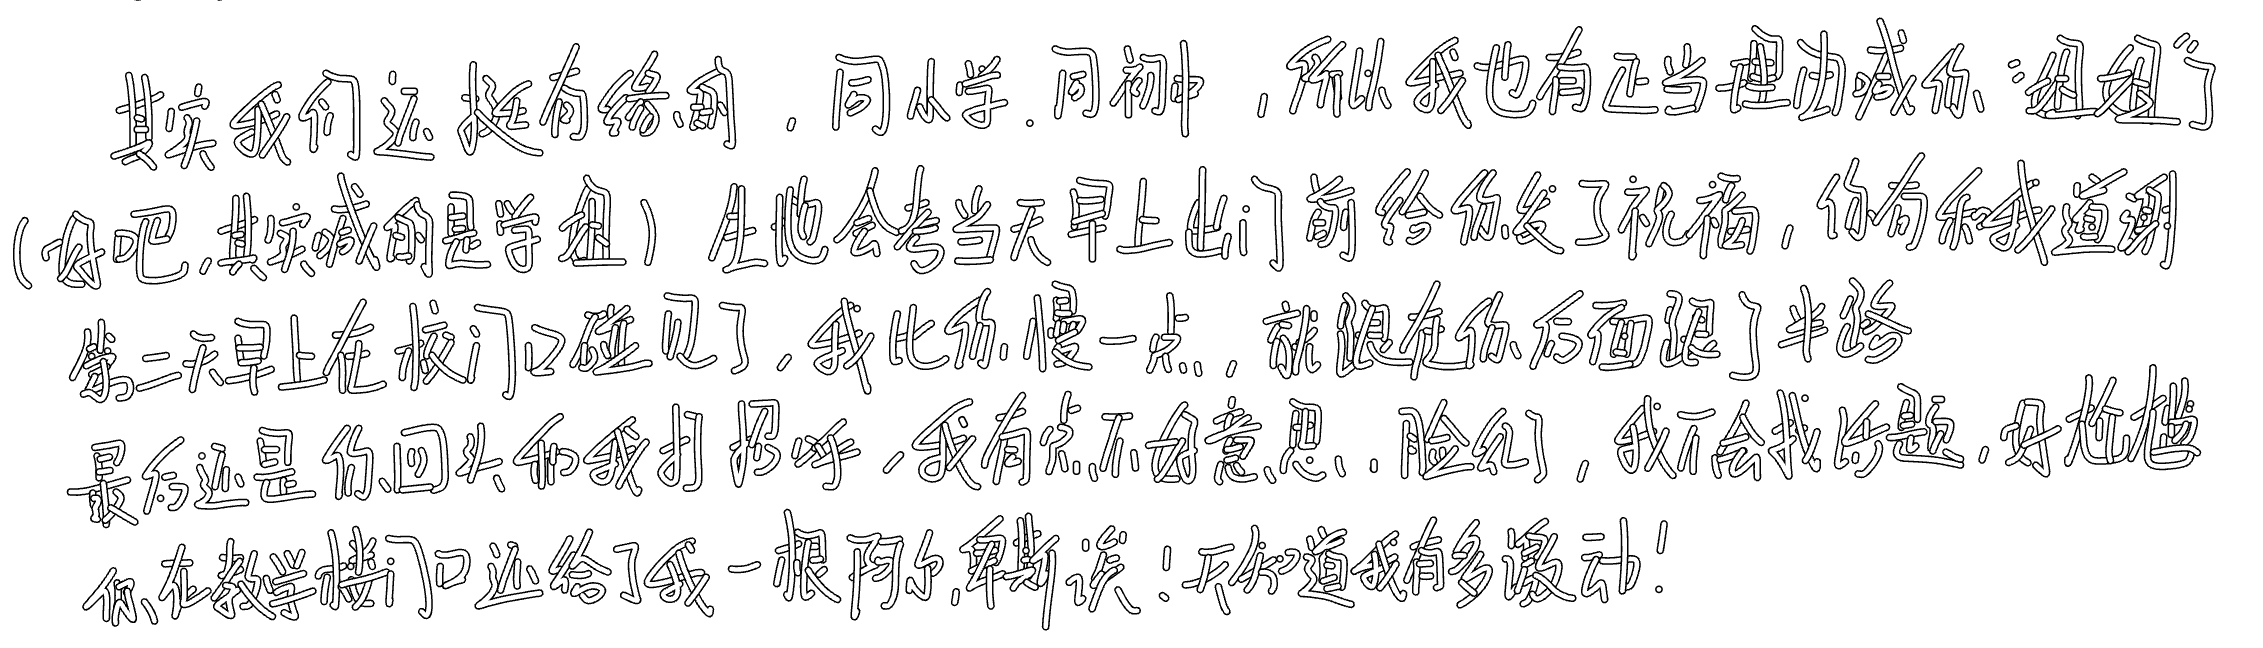 其实我们还挺有缘的，同小学.同初中，所以我也有正当理由喊你“姐姐”了
（好吧，其实喊的是学姐）生地会考当天早上出门前给你发了祝福，你有和我道谢
第二天早上在校门口碰见了，我比你慢一点，就跟在你后面跟了半路
最后还是你回头和我打招呼，我有点不好意思.脸红了，我不会找话题，好尴尬
你在教学楼门口还给了我一根阿尔卑斯诶！天知道我有多激动！